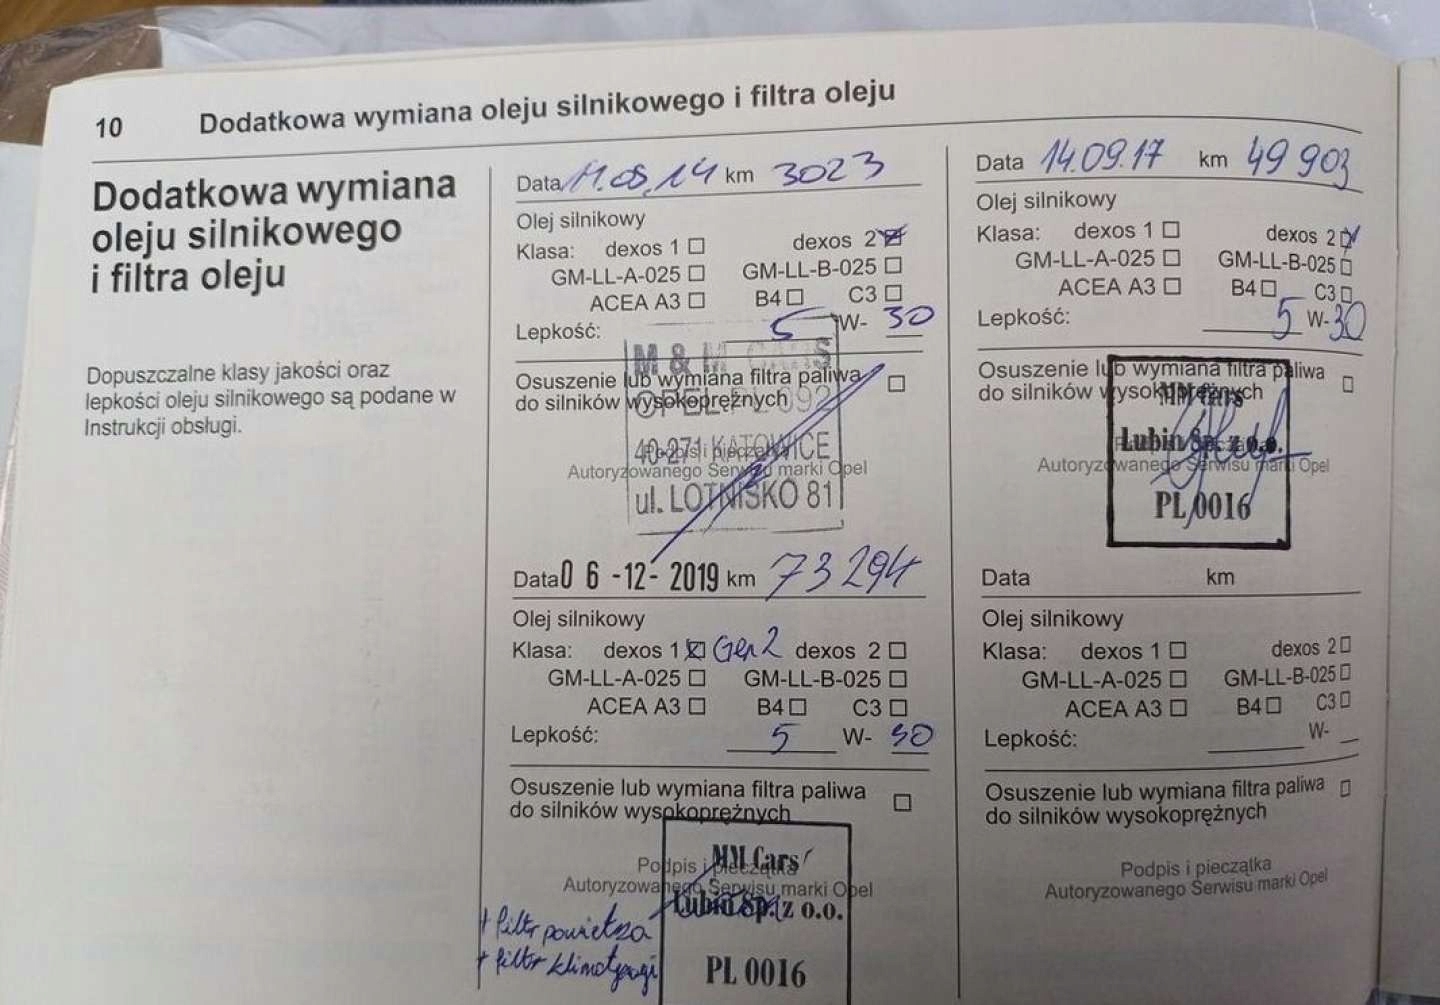 10 Dodatkowa wymiana oleju silnikowego i filtra oleju
Dodatkowa wymiana
oleju silnikowego
i filtra oleju
Dopuszczalne klasy jakości oraz
lepkości oleju silnikowego są podane w
Instrukcji obsługi.
Data 11.08.14 km 3023
Olej silnikowy
Klasa: dexos 1 dexos 2
GM-LL-A-025 GM-LL-B-025
ACEA A3 B4 C3
Lepkość: 5 W- 30
Osuszenie lub wymiana filtra paliwa
do silników wysokoprężnych
M & M CARS
OPEL PL 092
40-271 KATOWICE
ul. LOTNISKO 81
Podpis i pieczątka
Autoryzowanego Serwisu marki Opel
Data 06-12-2019 km 73 294
Olej silnikowy
Klasa: dexos 1 Gen 2 dexos 2
GM-LL-A-025 GM-LL-B-025
ACEA A3 B4 C3
Lepkość: 5 W- 30
Osuszenie lub wymiana filtra paliwa
do silników wysokoprężnych
Podpis i pieczątka
Autoryzowanego Serwisu marki Opel
MM Cars
Lubin Sp. z o.o.
PL 0016
+ filtr powietrza
+ filtr klimatyzacji
Data 14.09.17 km 49 903
Olej silnikowy
Klasa: dexos 1 dexos 2
GM-LL-A-025 GM-LL-B-025
ACEA A3 B4 C3
Lepkość: 5 W- 30
Osuszenie lub wymiana filtra paliwa
do silników wysokoprężnych
MM Cars
Lubin Sp. z o.o.
PL 0016
Podpis i pieczątka
Autoryzowanego Serwisu marki Opel
Data km
Olej silnikowy
Klasa: dexos 1 dexos 2
GM-LL-A-025 GM-LL-B-025
ACEA A3 B4 C3
Lepkość: W-
Osuszenie lub wymiana filtra paliwa
do silników wysokoprężnych
Podpis i pieczątka
Autoryzowanego Serwisu marki Opel